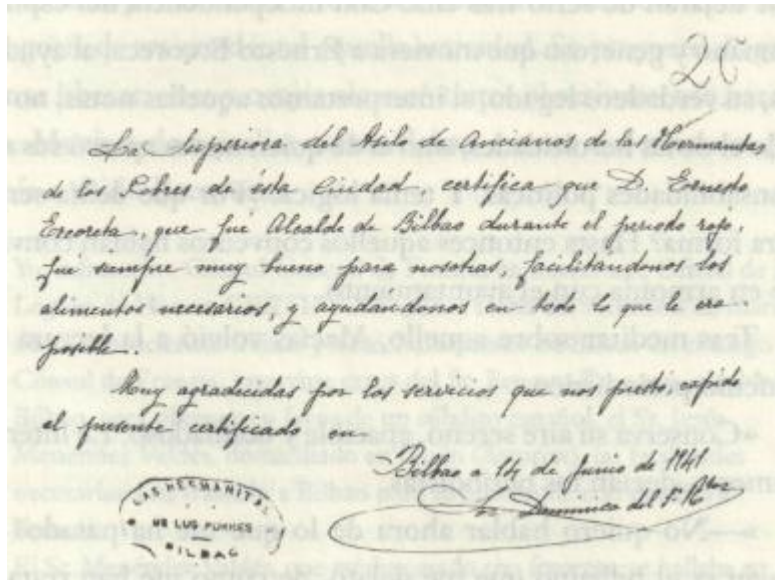 25
La Superiora del Asilo de Ancianos de las Hermanitas
de los Pobres de ésta Ciudad, certifica que D. Ernesto
Ercoreta, que fué Alcalde de Bilbao durante el periodo rojo,
fué siempre muy bueno para nosotras, facilitandonos los
alimentos necesarios, y ayudandonos en todo lo que le era
posible.
Muy agradecidas por los servicios que nos prestó expido
el presente certificado en
Bilbao a 14 de Junio de 1941
Sor
LAS HERMANITAS
DE LOS POBRES
BILBAO